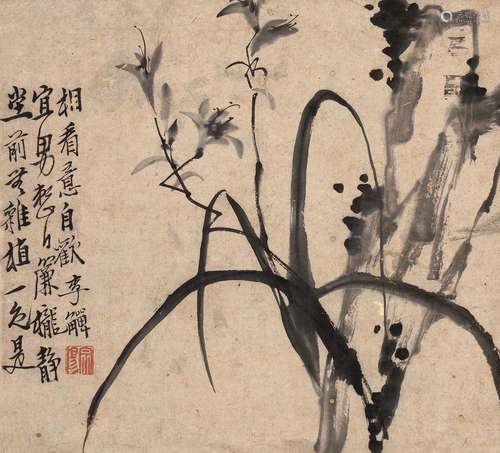 堂前無雜植一色是
宜男日簾櫳靜
相看意自歡李鱓